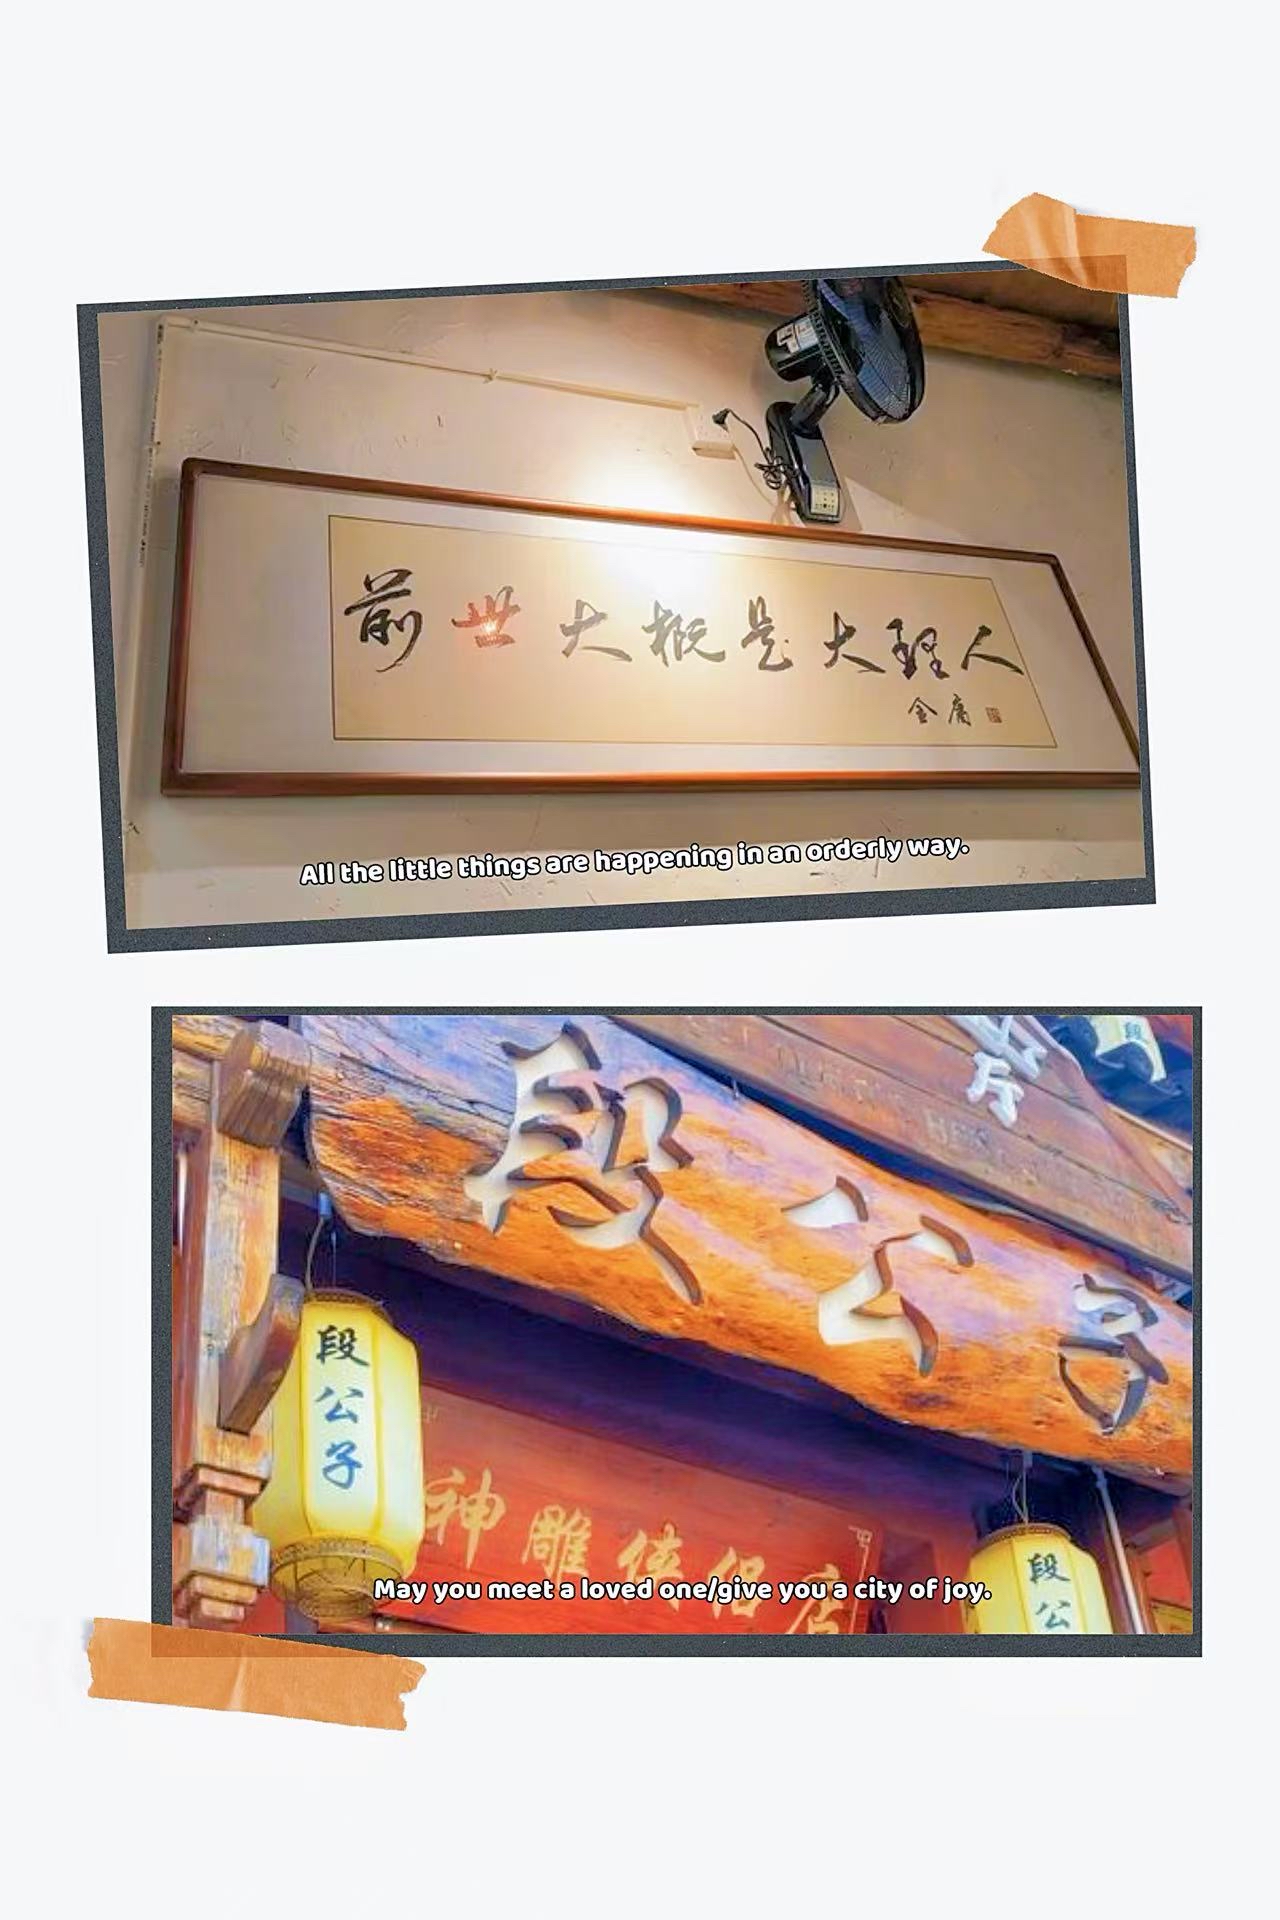 前世大概是大理人
金庸
All the little things are happening in an orderly way.
段公子
段公子
神雕侠侣店
May you meet a loved one/give you a city of joy.
段公
段